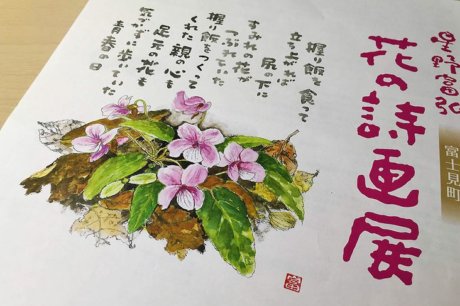 星野富弘
花の詩画展
富士見町
握り飯を食って
立ち上がれば
尻の下に
すみれの花が
つぶれていた
握り飯をつくって
くれた親の心も
足元の花も
気がかずに歩いていた
青春の日
富